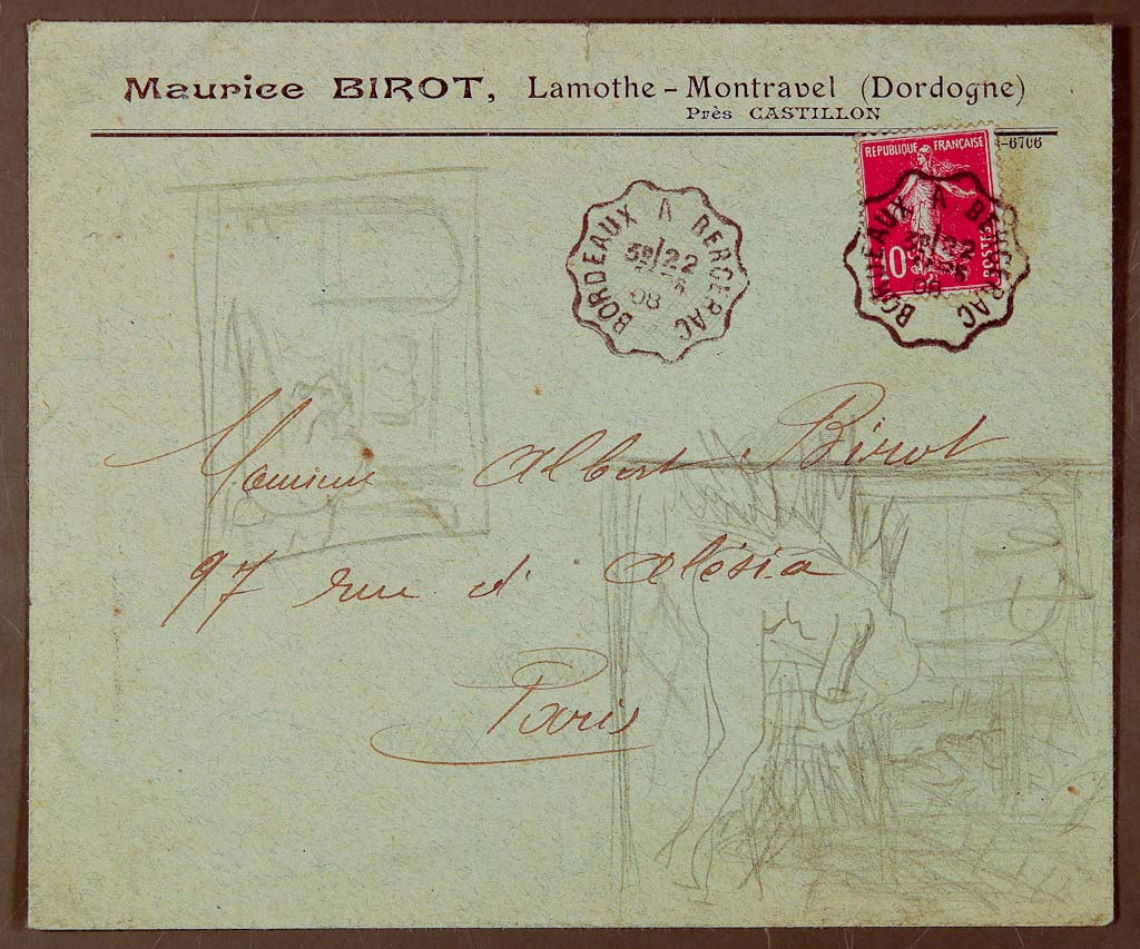 Maurice BIROT, Lamothe-Montravel (Dordogne)
Près CASTILLON
-6706
REPUBLIQUE FRANÇAISE
10
POSTES
BORDEAUX A BERGERAC
22
08
BORDEAUX A BERGERAC
22
08
Monsieur Albert Birot
97 rue d'Alésia
Paris